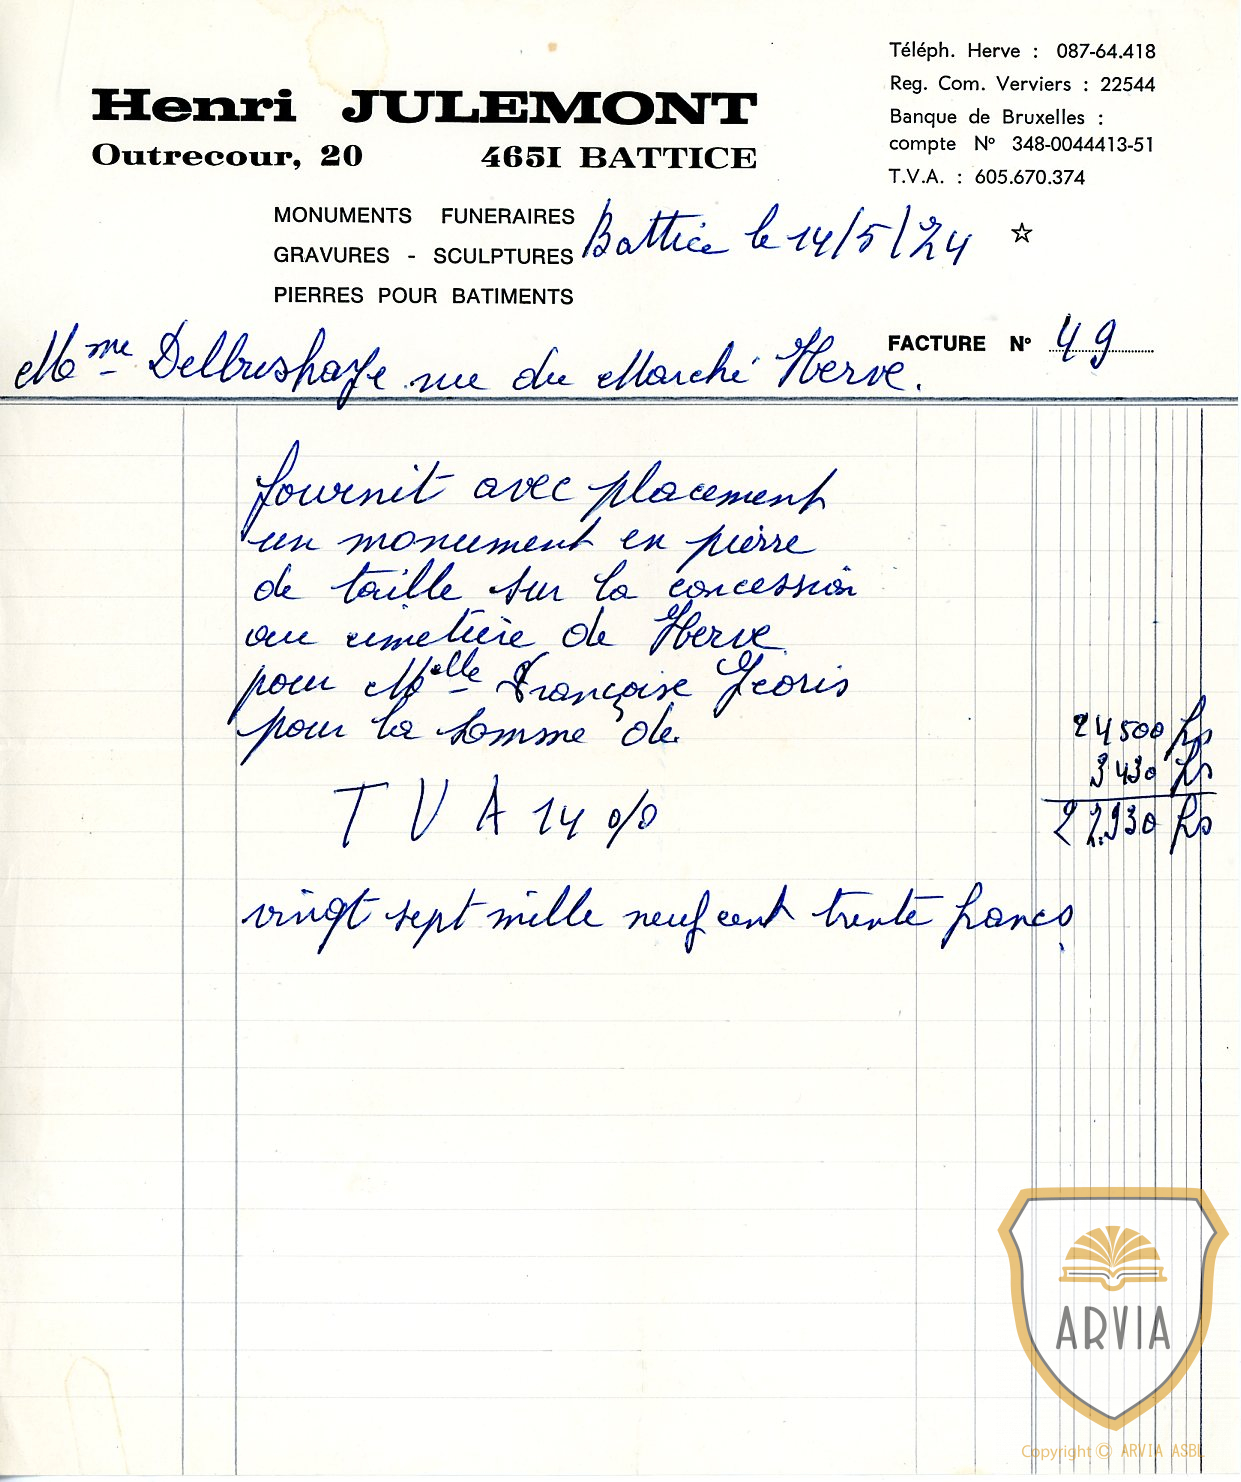 Henri JULEMONT
Outrecour, 20 4651 BATTICE
Téléph. Herve : 087-64.418
Reg. Com. Verviers : 22544
Banque de Bruxelles :
compte N° 348-0044413-51
T.V.A. : 605.670.374
MONUMENTS FUNERAIRES
GRAVURES - SCULPTURES
PIERRES POUR BATIMENTS
Battice le 14/5/74 ☆
FACTURE N° 49
Mme Delbushaye rue du Marché Herve.
fournit avec placement
un monument en pierre
de taille sur la concession
au cimetière de Herve
pour Melle Françoise Georis
pour la somme de 24500 frs
3430 frs
TVA 14 %
27.930 frs
vingt sept mille neuf cent trente francs
ARVIA
Copyright © ARVIA ASBL